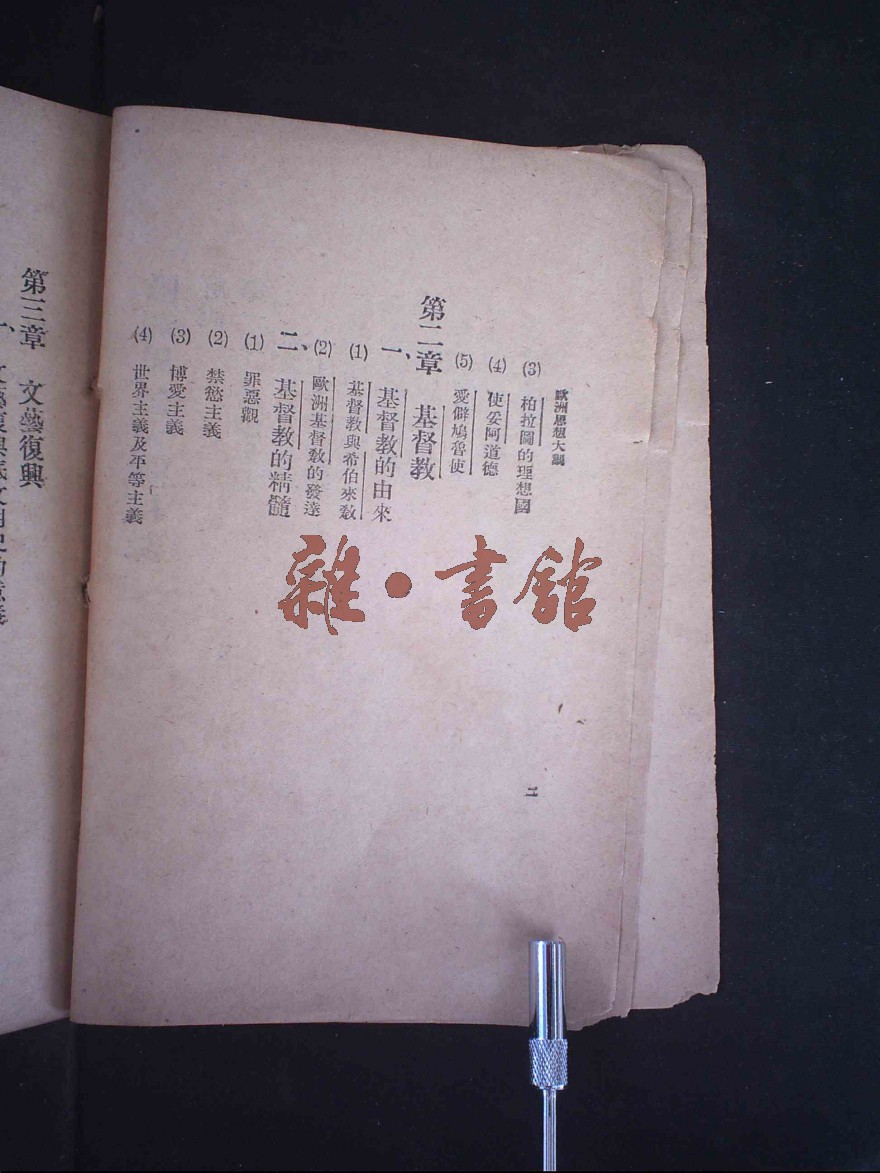 歐洲思想大綱
(3) 柏拉圖的理想國
(4) 使妥阿道德
(5) 愛僻鳩魯使
第二章 基督教
一、基督教的由來
(1) 基督教與希伯來敎
(2) 歐洲基督敎的發達
二、基督教的精髓
(1) 罪惡觀
(2) 禁慾主義
(3) 博愛主義
(4) 世界主義及平等主義
二
第三章 文藝復興
一、文藝復興底文明史的意義
雜·書館